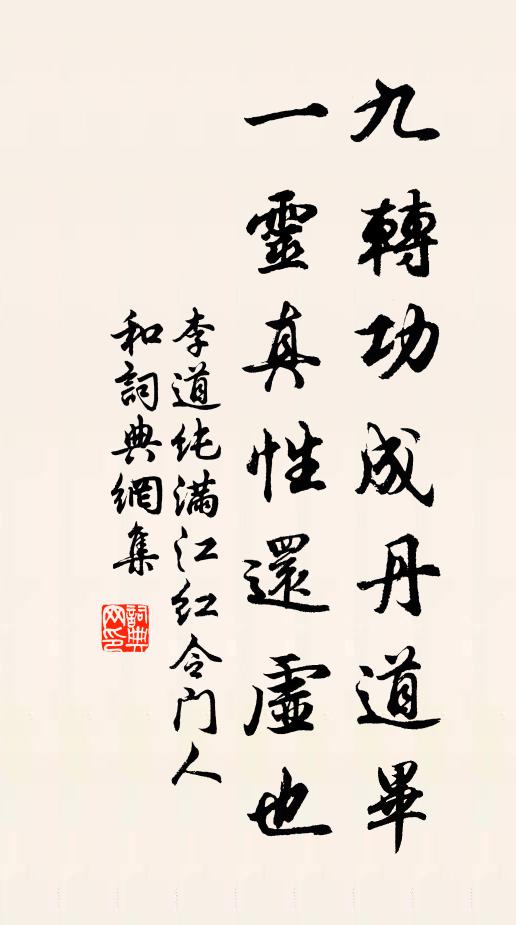 九轉功成丹道畢
一靈真性還虛也
李道纯满江红令门人
和詞典網集
詞典
网印